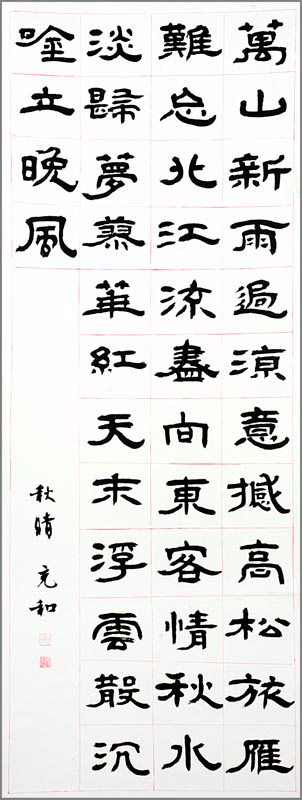 萬山新雨過涼意撼高松旅雁
難忘北江流盡向東客情秋水
淡歸夢蓼華紅天末浮雲散沉
唫立晚風
秋晴 充和